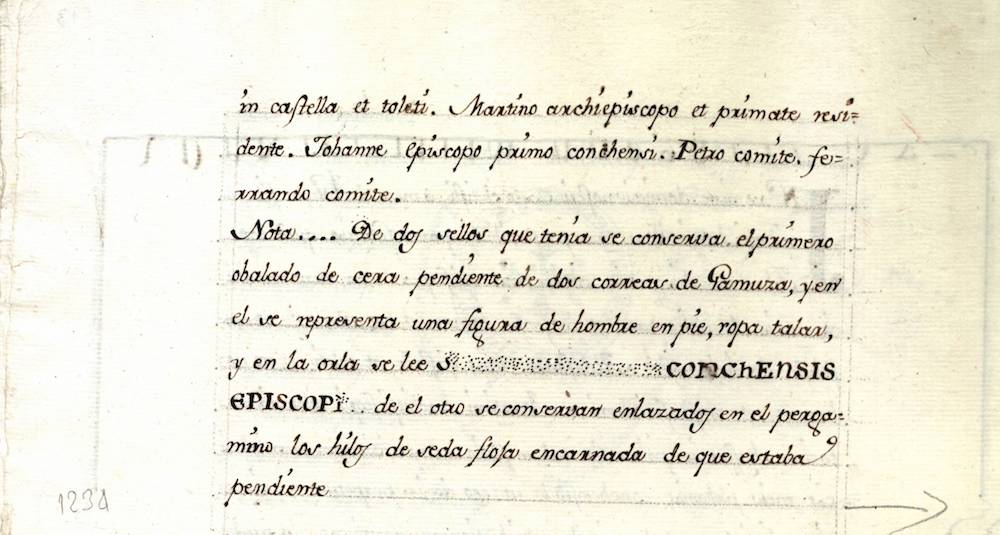 in castella et toleti. Martino archiepiscopo et primate resi=
dente. Johanne episcopo primo conchensi. Petro comite. fe=
rrando comite.
Nota.... De dos sellos que tenia se conserva el primero
obalado de cera pendiente de dos correas de Gamuza, y en
el se representa una figura de hombre en pie, ropa talar,
y en la orla se lee S CONChENSIS
EPISCOPI.. de el otro se conservan enlazados en el perga=
mino los hilos de seda flosa encarnada de que estaba
pendiente
1234